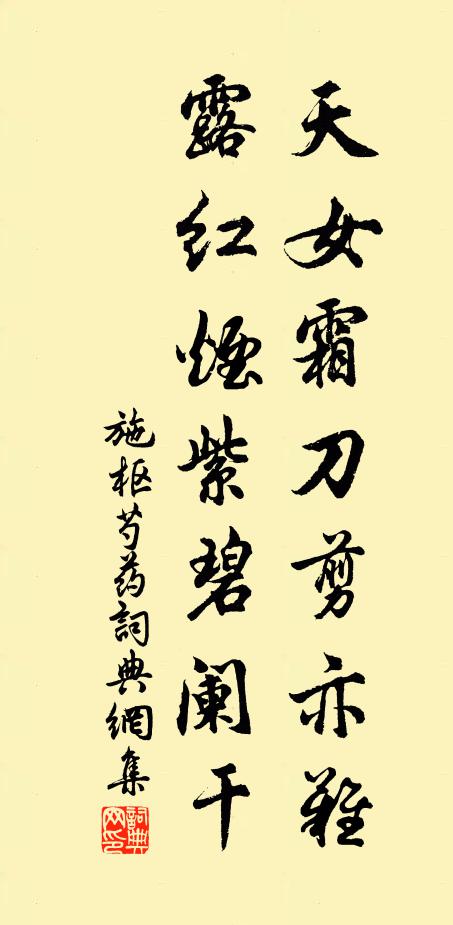 天女霜刀剪亦難
露红煙紫碧阑干
施枢芍药詞典網集
詞典網印